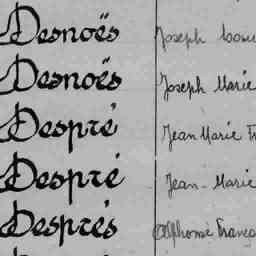 Desnoës Joseph
Desnoës Joseph Marie
Despré Jean Marie
Despré Jean-Marie
Després Alphonse